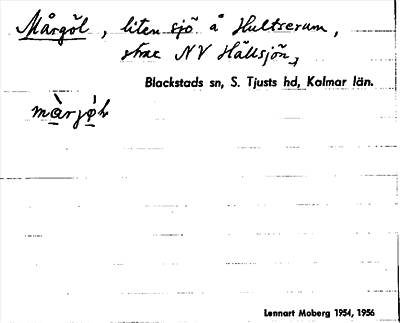 Mårgöl, liten sjö å Hultserum,
strax NV Hällsjön,
Blackstads sn, S. Tjusts hd, Kalmar län.
Lennart Moberg 1954, 1956